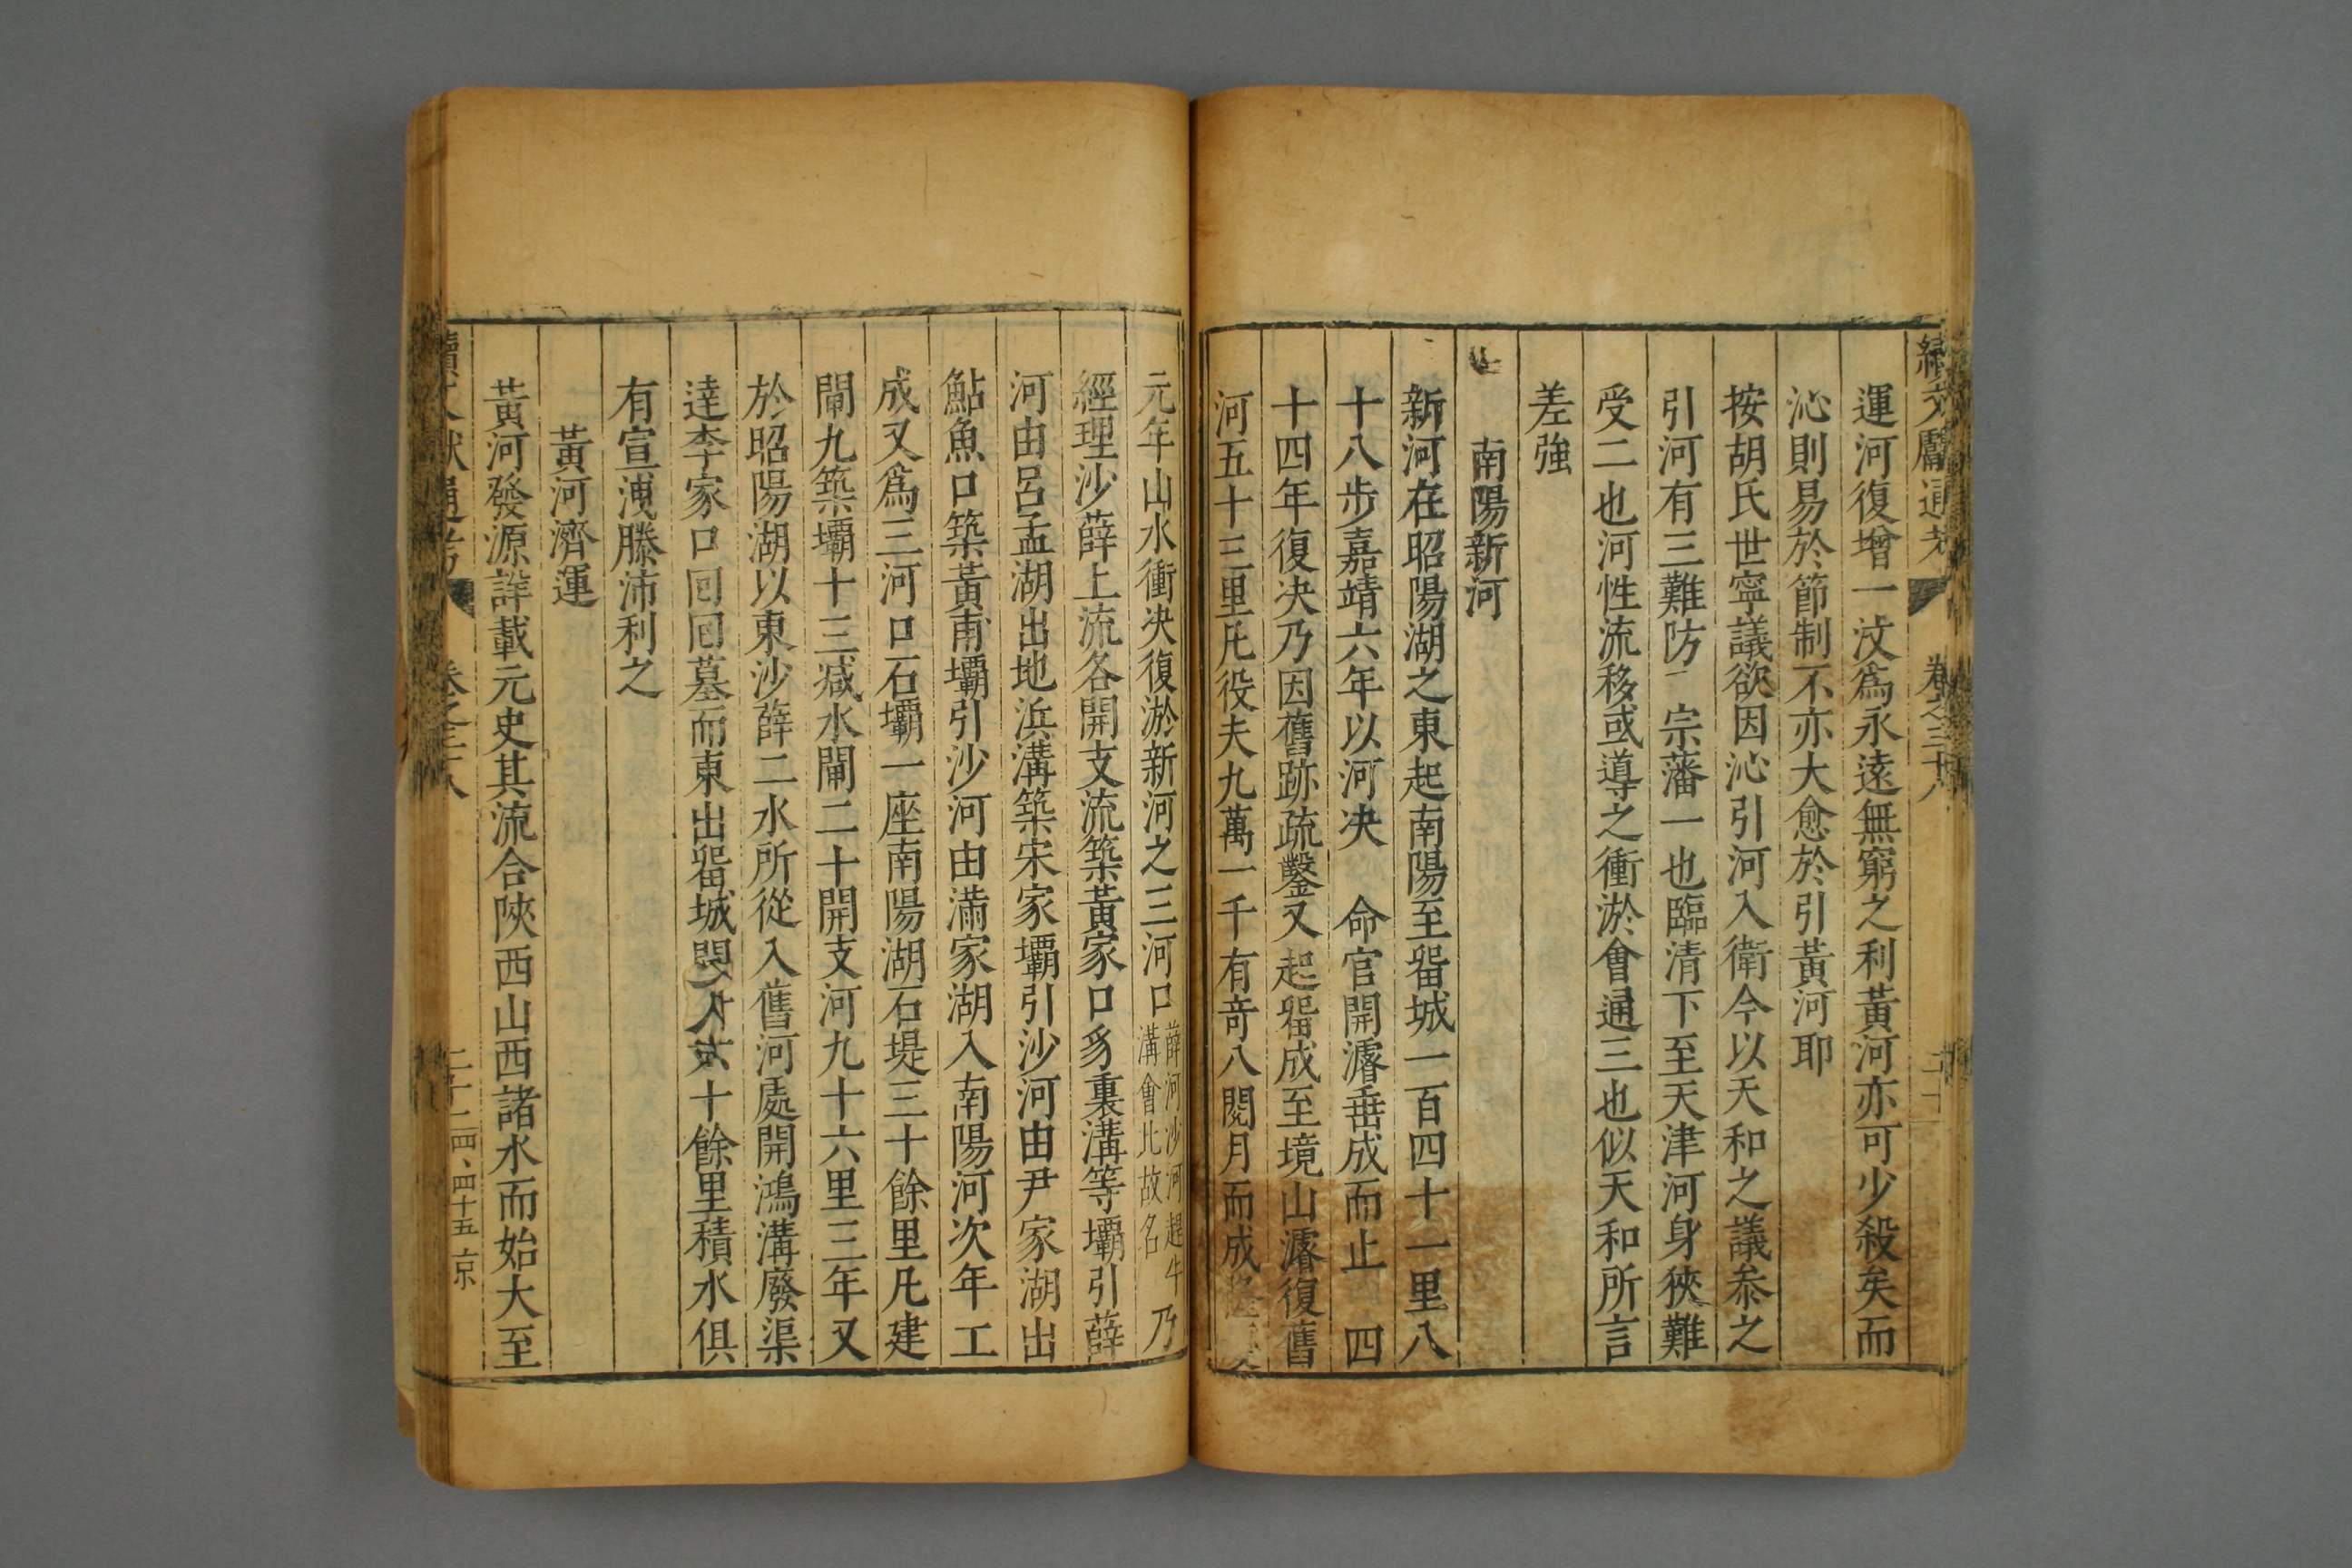 續文獻通考 卷之三十八
運河復增一汶爲永遠無窮之利黃河亦可少殺矣而
沁則易於節制不亦大愈於引黃河耶
按胡氏世寧議欲因沁引河入衛今以天和之議叅之
引河有三難防 宗藩一也臨清下至天津河身狹難
受二也河性流移或導之衝淤會通三也似天和所言
差強
南陽新河
新河在昭陽湖之東起南陽至畱城一百四十一里八
十八步嘉靖六年以河决 命官開濬垂成而止 四
十四年復决乃因舊跡疏鑿又起畱成至境山濬復舊
河五十三里凡役夫九萬一千有竒八閱月而成隆慶
元年山水衝决復淤新河之三河口薛河沙河趕牛溝會此故名乃
經理沙薛上流各開支流築黃家口豸裏溝等壩引薛
河由呂孟湖出地浜溝築宋家壩引沙河由尹家湖出
鮎魚口築黃甫壩引沙河由滿家湖入南陽河次年工
成又爲三河口石壩一座南陽湖石堤三十餘里凡建
閘九築壩十三减水閘二十開支河九十六里三年又
於昭陽湖以東沙薛二水所從入舊河處開鴻溝廢渠
達李家口回回墓而東出畱城閘六十餘里積水俱
有宣洩滕沛利之
黃河濟運
黃河發源詳載元史其流合陝西山西諸水而始大至
續文獻通考 卷之三十八 二十二 四、四十五 京